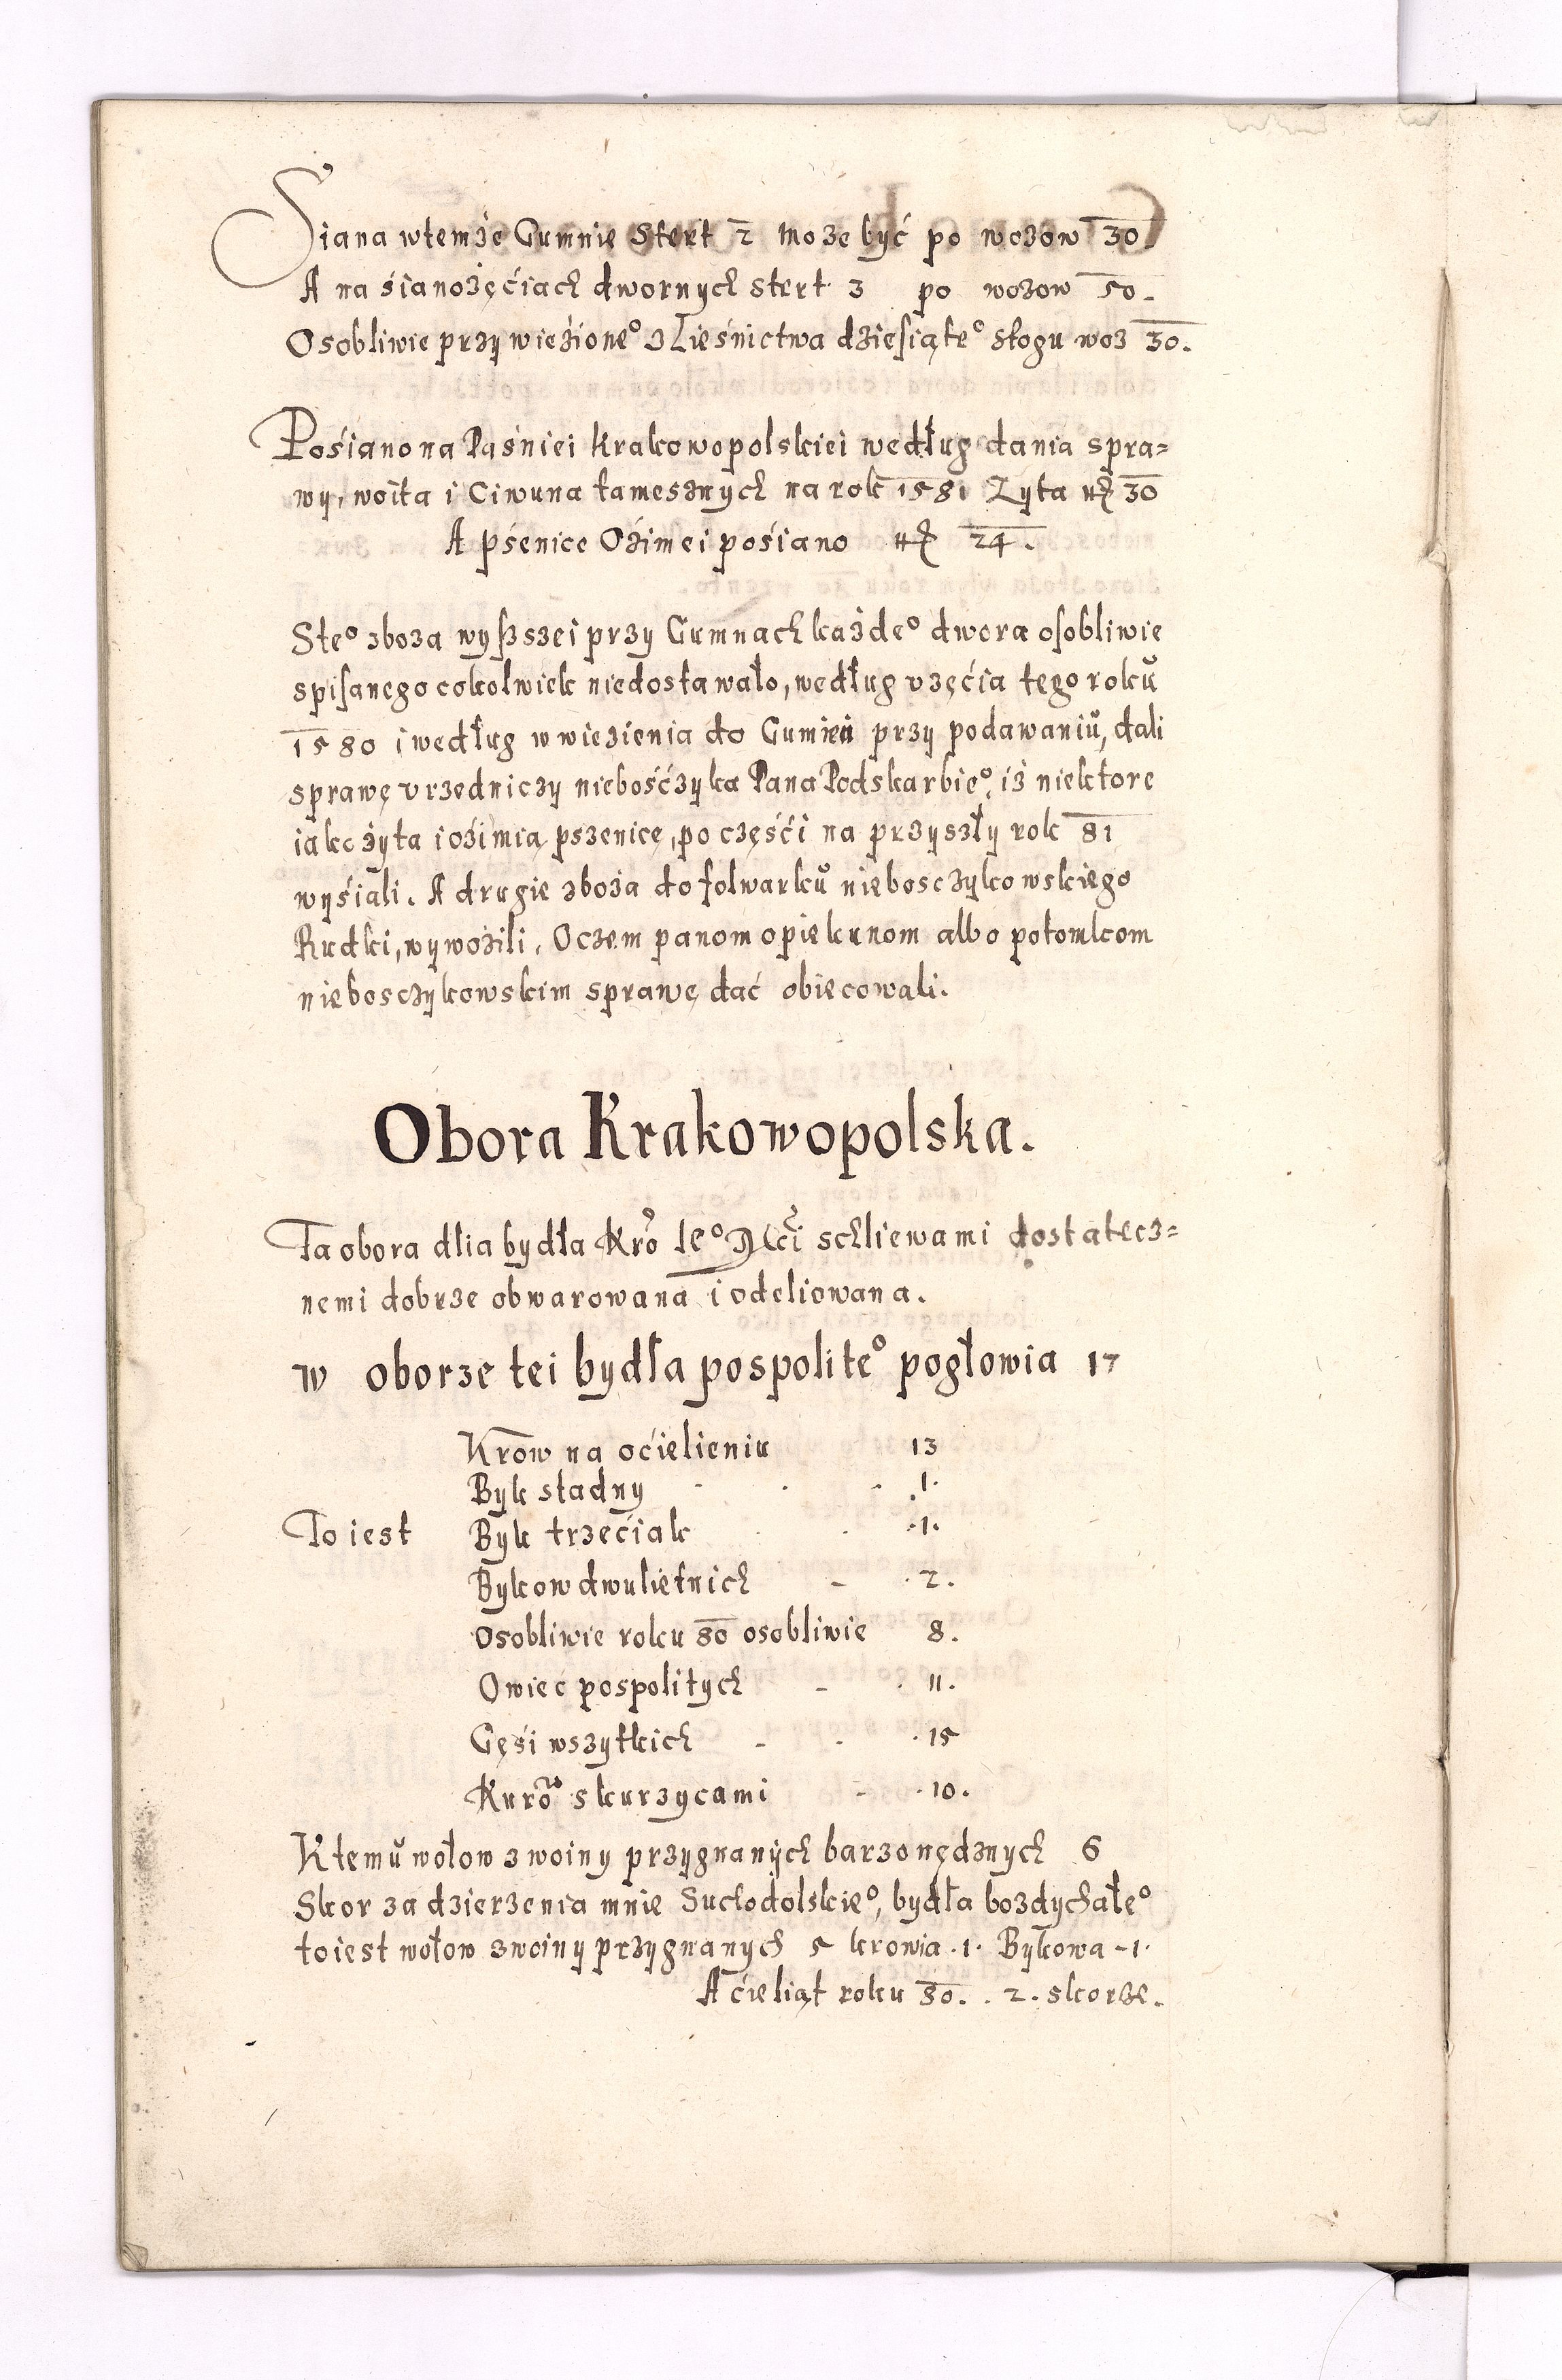 Siana wtemże Gumnie Stert 2 może być po wozow 30
A na śianożęćiach dwornych stert 3 po wozow 50.
Osobliwie przywieźione⁰ z Lieśnictwa dzieſiąte⁰ stogu woz 30.
Pośiano na Paśniei Krakowopolskiei według dania spra=
wy, woita i Ciwuna tamesznych na rok 1581 Zyta 30
A pśenice Oźimei pośiano 24.
Ste⁰ zboża wyſzszei przy Gumnach każde⁰ dwora oſobliwie
spiſanego cokolwiek niedostawało, według vzęćia tego roků
1580 i według wwiezienia do Gumień przy podawaniů, dali
sprawę vrzedniczy niebośćzyka Pana Podskarbie⁰, iż niektore
iako żyta i oźimią pszenicę, po częśći na przyszły rok 81
wyśiali. A drugie zboża do folwarků niebosczykowskiego
Rudki, wywozili. Oczem panom opiekunom albo potomkom
niebosczykowskim sprawę dać obiecowali.
Obora Krakowopolska.
Ta obora dlia bydła Kro Ie⁰ Mći schliewami dostatecz=
nemi dobrze obwarowana i odeliowana.
w oborze tei bydła pospolite⁰ pogłowia 17
Krow na oćielieniu 13
Byk stadny - . - .1.
To iest Byk trzećiak . . .1.
Bykow dwulietnich - .2.
Osobliwie roku 80 osobliwie 8.
Owiec pospolitych - . 11.
Gęśi wszytkich - . .15
Kuro skurzycami - .10.
Ktemů wołow z woiny przygnanych barzo nędznych 6
Skor za dzierżenia mnie Suchodolskie⁰, bydła bozdychałe⁰
to iest wołow zwoiny przygnanych 5 krowia .1. Bykowa -1.
A ćieliąt roku 80. . 2. skorze.